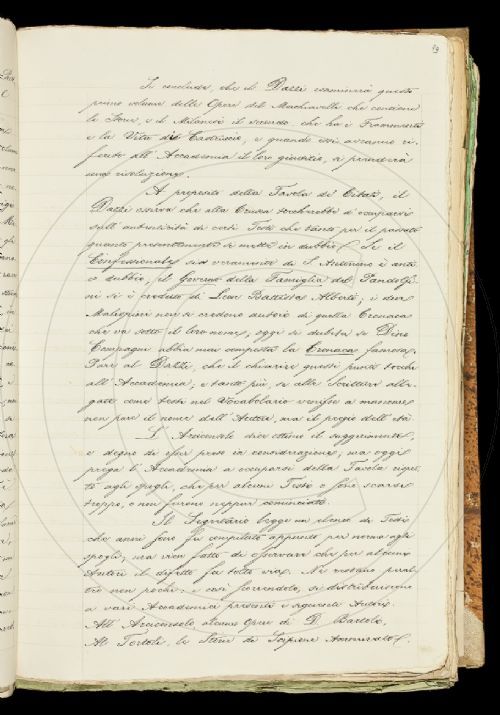 39
Si conclude, che il Dazzi esaminerà questo
primo volume delle Opere del Machiavelli che contiene
le Storie, e il Milanesi il secondo che ha i Frammenti
e la Vita di Castruccio, e quando essi avranno ri-
ferito all'Accademia il loro giudizio, si prenderà
una risoluzione.
A proposito della Tavola de' Citati, il
Dazzi osserva che alla Crusca toccherebbe d'occuparsi
sull'autenticità di certi Testi che tanto per il passato
quanto presentemente si mette in dubbio. Che il
Confessionale sia veramente di S. Antonino è anti-
co dubbio, il Governo della Famiglia del Pandolfi-
ni si è creduto di Leon Battista Alberti, i due
Malispini non si credono autori di quella Cronaca
che va sotto il loro nome, oggi si dubita se Dino
Compagni abbia mai composta la Cronaca famosa.
Pare al Dazzi, che il chiarire questi punti tocchi
all'Accademia, e tanto più, se alle Scritture alle-
gate come testi nel Vocabolario venisse a mancare
non pure il nome dell'Autore, ma il pregio dell'età.
L'Arciconsolo dice ottimo il suggerimento,
e degno di esser preso in considerazione; ma oggi
prega l'Accademia a occuparsi della Tavola rispet-
to agli spogli, che per alcuni Testi o sono scarsi
troppo, o non furono neppur cominciati.
Il Segretario legge un elenco di Testi
che anni sono fu compilato appunto per norma agli
spogli; ma vien fatto di osservare che per alcuni
Autori il difetto fu tolto via. Ne restano peral-
tro non pochi, e così scorrendolo, si distribuiscono
a vari Accademici presenti i seguenti Autori.
All'Arciconsolo alcune Opere di D. Bartoli,
Al Tortoli, le Storie di Scipione Ammirato.